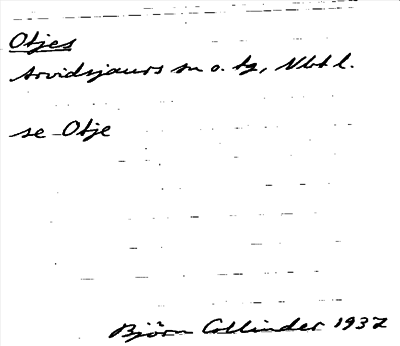 Otjes
Arvidsjaurs sn o. tg, Vbtl.
se Otje
Björn Collinder 1937